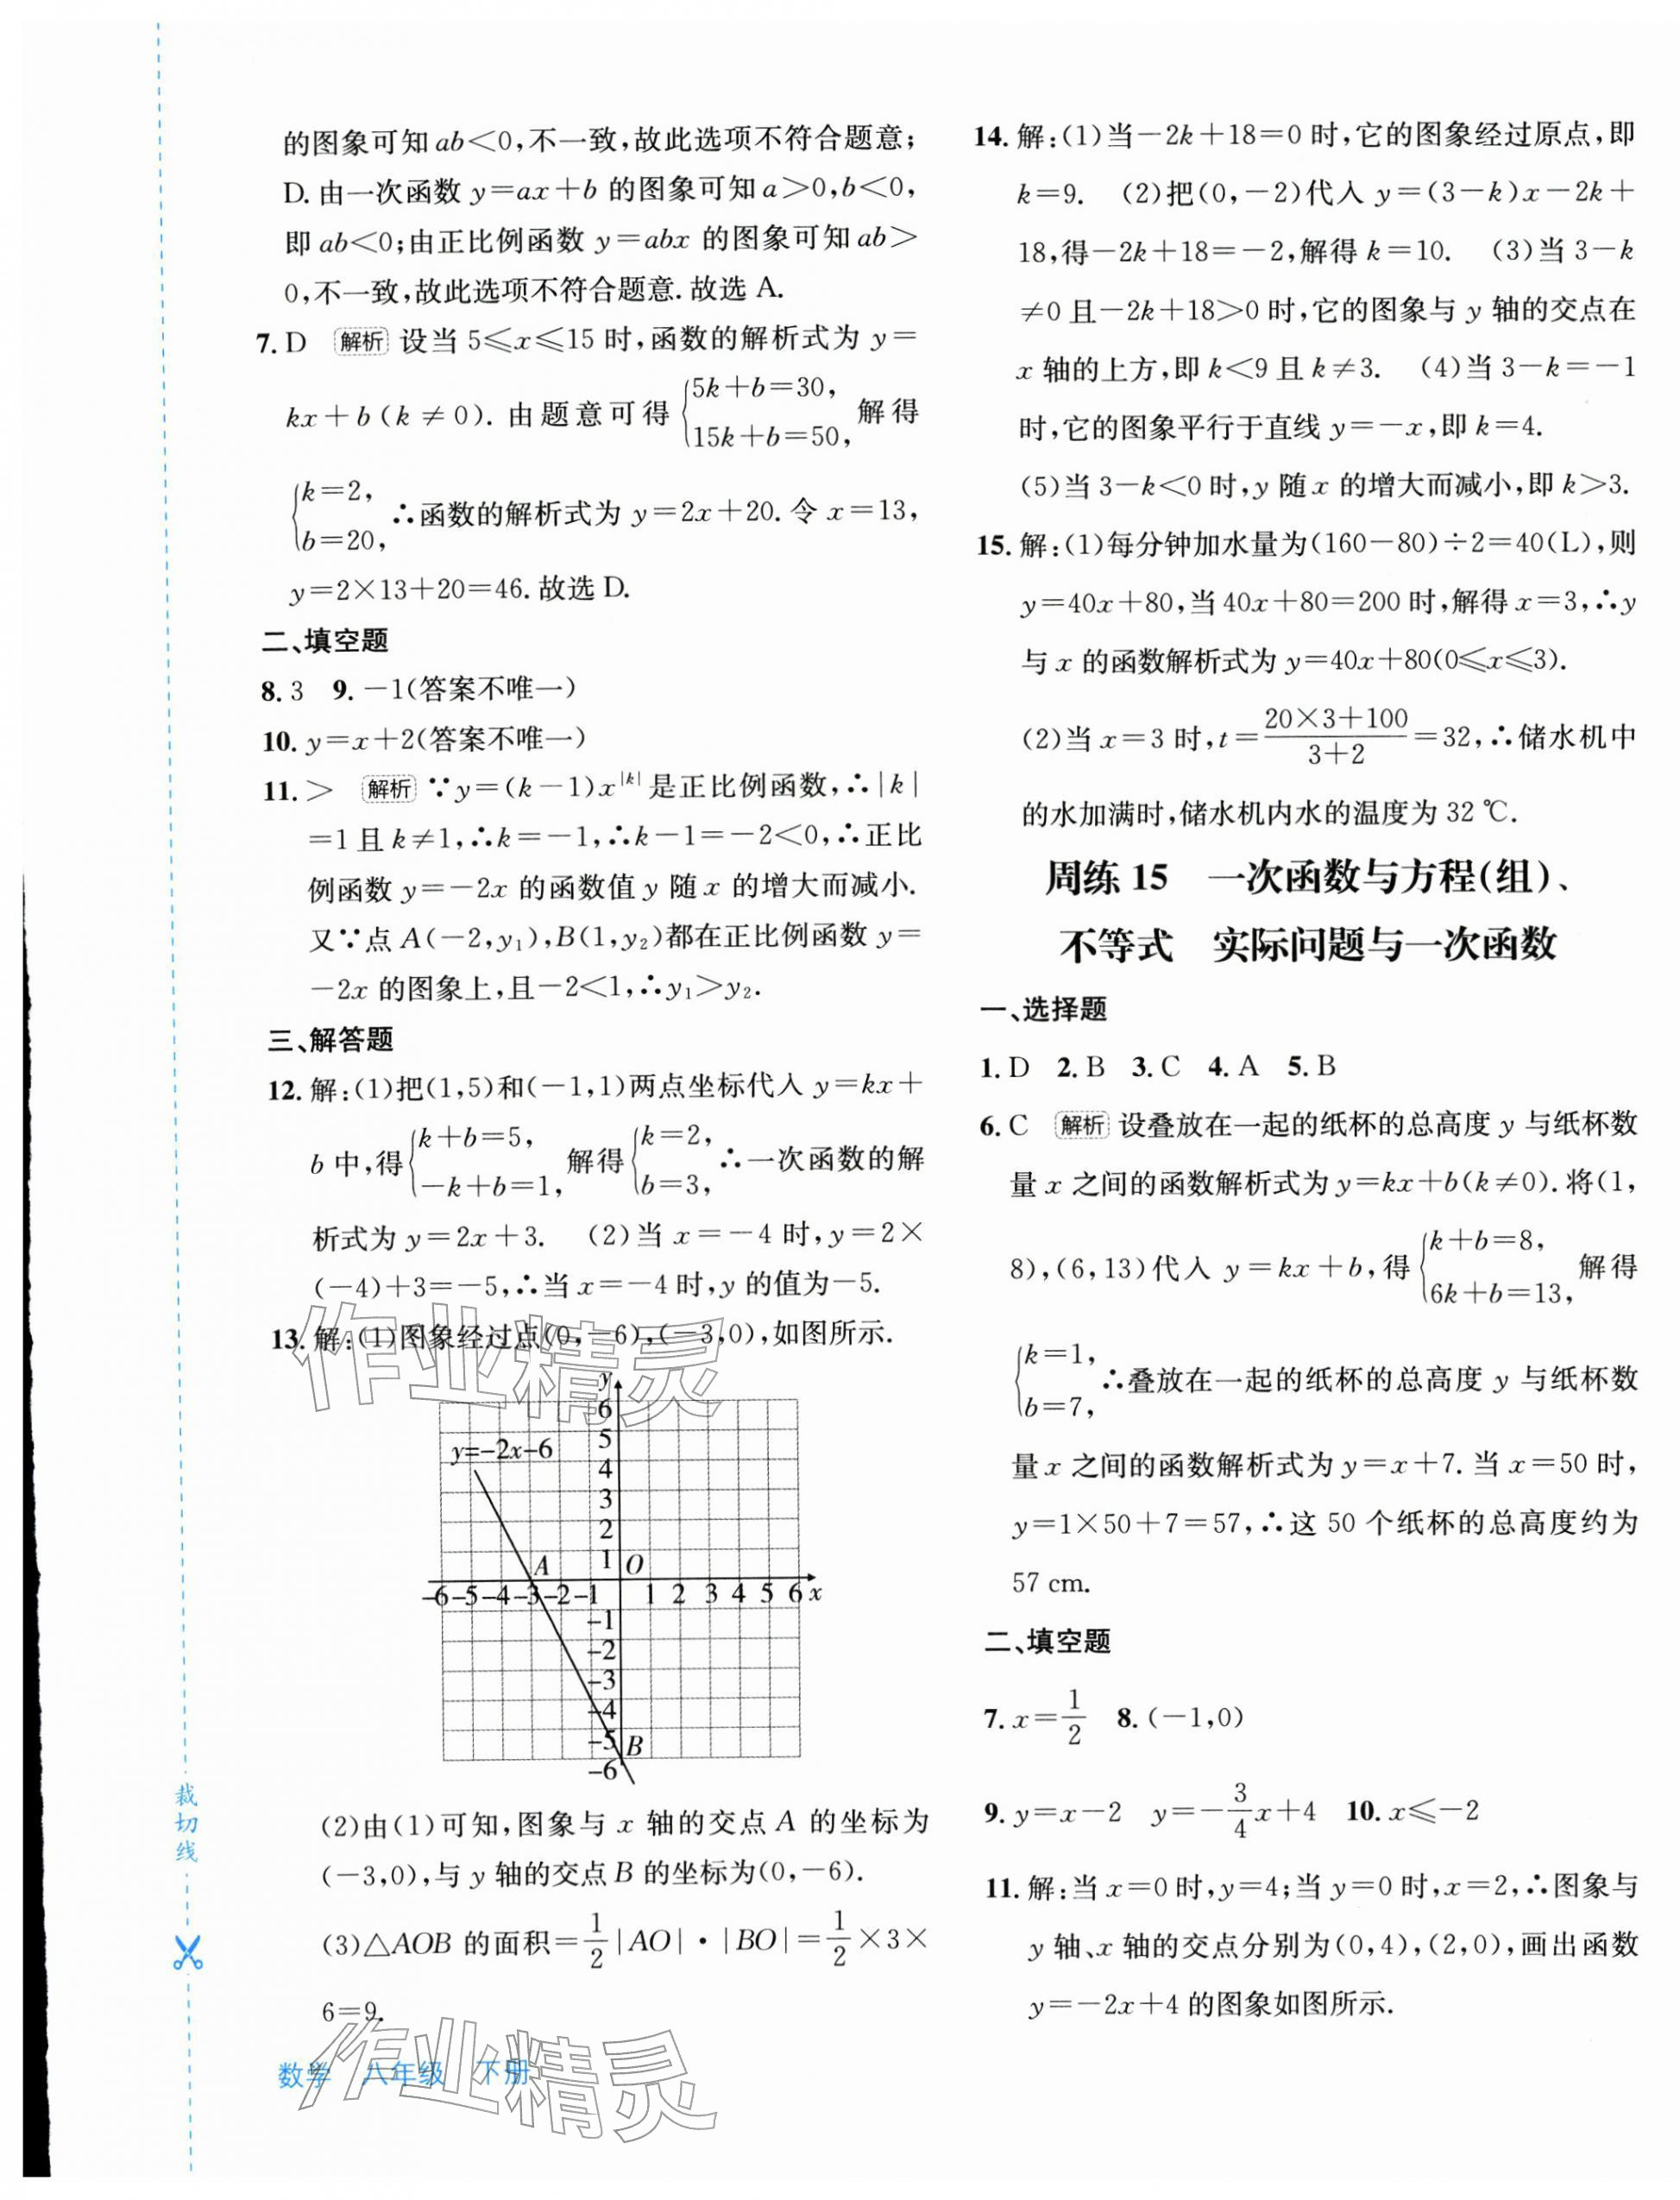 的图象可知 ab＜0,不一致,故此选项不符合题意;
D. 由一次函数 y=ax+b 的图象可知 a＞0,b＜0,
即 ab＜0;由正比例函数 y=abx 的图象可知 ab＞
0,不一致,故此选项不符合题意. 故选 A.
7. D 解析 设当 5≤x≤15 时,函数的解析式为 y=
kx+b(k≠0). 由题意可得 {5k+b=30, 15k+b=50, 解得
{k=2, b=20, ∴函数的解析式为 y=2x+20. 令 x=13,
y=2×13+20=46. 故选 D.
二、填空题
8. 3 9. -1(答案不唯一)
10. y=x+2(答案不唯一)
11. ＞ 解析 ∵y=(k-1)x^|k| 是正比例函数,∴|k|
=1 且 k≠1,∴k=-1,∴k-1=-2＜0,∴正比
例函数 y=-2x 的函数值 y 随 x 的增大而减小.
又∵点 A(-2,y₁),B(1,y₂)都在正比例函数 y=
-2x 的图象上,且-2＜1,∴y₁＞y₂.
三、解答题
12. 解:(1)把(1,5)和(-1,1)两点坐标代入 y=kx+
b 中,得{k+b=5, -k+b=1, 解得{k=2, b=3, ∴一次函数的解
析式为 y=2x+3. (2)当 x=-4 时,y=2×
(-4)+3=-5,∴当 x=-4 时,y 的值为-5.
13. 解:(1)图象经过点(0,-6),(-3,0),如图所示.
y
6
y=-2x-6
5
4
3
2
1
A
O
-6 -5 -4 -3 -2 -1 1 2 3 4 5 6 x
-1
-2
-3
-4
-5
B
-6
(2)由(1)可知,图象与 x 轴的交点 A 的坐标为
(-3,0),与 y 轴的交点 B 的坐标为(0,-6).
(3)△AOB 的面积=1/2|AO|·|BO|=1/2×3×
6=9.
数学 八年级 下册
14. 解:(1)当-2k+18=0 时,它的图象经过原点,即
k=9. (2)把(0,-2)代入 y=(3-k)x-2k+
18,得-2k+18=-2,解得 k=10. (3)当 3-k
≠0 且-2k+18＞0 时,它的图象与 y 轴的交点在
x 轴的上方,即 k＜9 且 k≠3. (4)当 3-k=-1
时,它的图象平行于直线 y=-x,即 k=4.
(5)当 3-k＜0 时,y 随 x 的增大而减小,即 k＞3.
15. 解:(1)每分钟加水量为(160-80)÷2=40(L),则
y=40x+80,当 40x+80=200 时,解得 x=3,∴y
与 x 的函数解析式为 y=40x+80(0≤x≤3).
(2)当 x=3 时,t=(20×3+100)/(3+2)=32,∴储水机中
的水加满时,储水机内水的温度为 32 ℃.
周练 15 一次函数与方程(组)、
不等式 实际问题与一次函数
一、选择题
1. D 2. B 3. C 4. A 5. B
6. C 解析 设叠放在一起的纸杯的总高度 y 与纸杯数
量 x 之间的函数解析式为 y=kx+b(k≠0). 将(1,
8),(6,13)代入 y=kx+b,得{k+b=8, 6k+b=13, 解得
{k=1, b=7, ∴叠放在一起的纸杯的总高度 y 与纸杯数
量 x 之间的函数解析式为 y=x+7. 当 x=50 时,
y=1×50+7=57,∴这 50 个纸杯的总高度约为
57 cm.
二、填空题
7. x=1/2 8. (-1,0)
9. y=x-2 y=-3/4x+4 10. x≤-2
11. 解:当 x=0 时,y=4;当 y=0 时,x=2,∴图象与
y 轴、x 轴的交点分别为(0,4),(2,0),画出函数
y=-2x+4 的图象如图所示.
裁切线
作业精灵
作业精灵